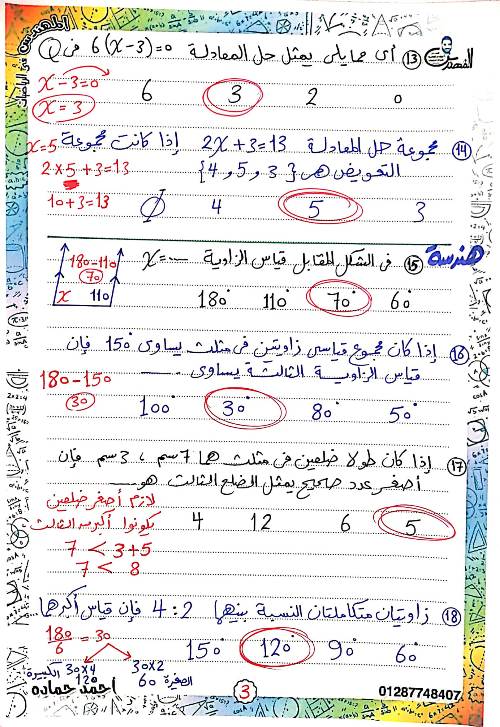 المهندس
فى الرياضيات
(13) أى مما يلى يمثل حل المعادلة 6(x-3)=0 فى Q
x-3=0
x=3
6 3 2 0
(14) مجموعة حل المعادلة 2x+3=13 إذا كانت مجموعة
x=5
التعويض هى {3, 5, 4}
2×5+3=13
10+3=13
∅ 4 5 3
هندسة
(15) فى الشكل المقابل قياس الزاوية x=......
180-110
70
x 110
180° 110° 70° 60°
(16) إذا كان مجموع قياسى زاويتين فى مثلث يساوى 150° فإن
قياس الزاوية الثالثة يساوى ......
180-150
30
100° 30° 80° 50°
(17) إذا كان طولا ضلعين فى مثلث هما 7سم ، 3سم فإن
أصغر عدد صحيح يمثل الضلع الثالث هو ......
لازم أصغر ضلعين
يكونوا أكبر من الثالث
4 12 6 5
7 < 3+5
7 < 8
(18) زاويتان متكاملتان النسبة بينهما 4:2 فإن قياس أكبرهما
180/6 = 30
150° 120° 90° 60°
30×4 الكبيرة
120
30×2
60 الصغيرة
احمد حماده
3
01287748407